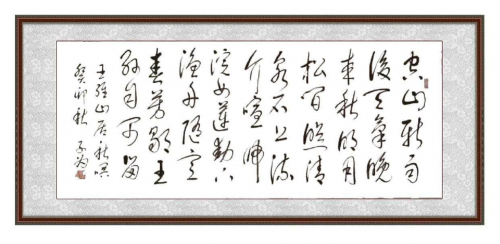 空山新雨
後天氣晚
來秋明月
松間照清
泉石上流
竹喧歸
浣女蓮動下
漁舟隨意
春芳歇王
孫自可留
王維山居秋暝
癸卯秋